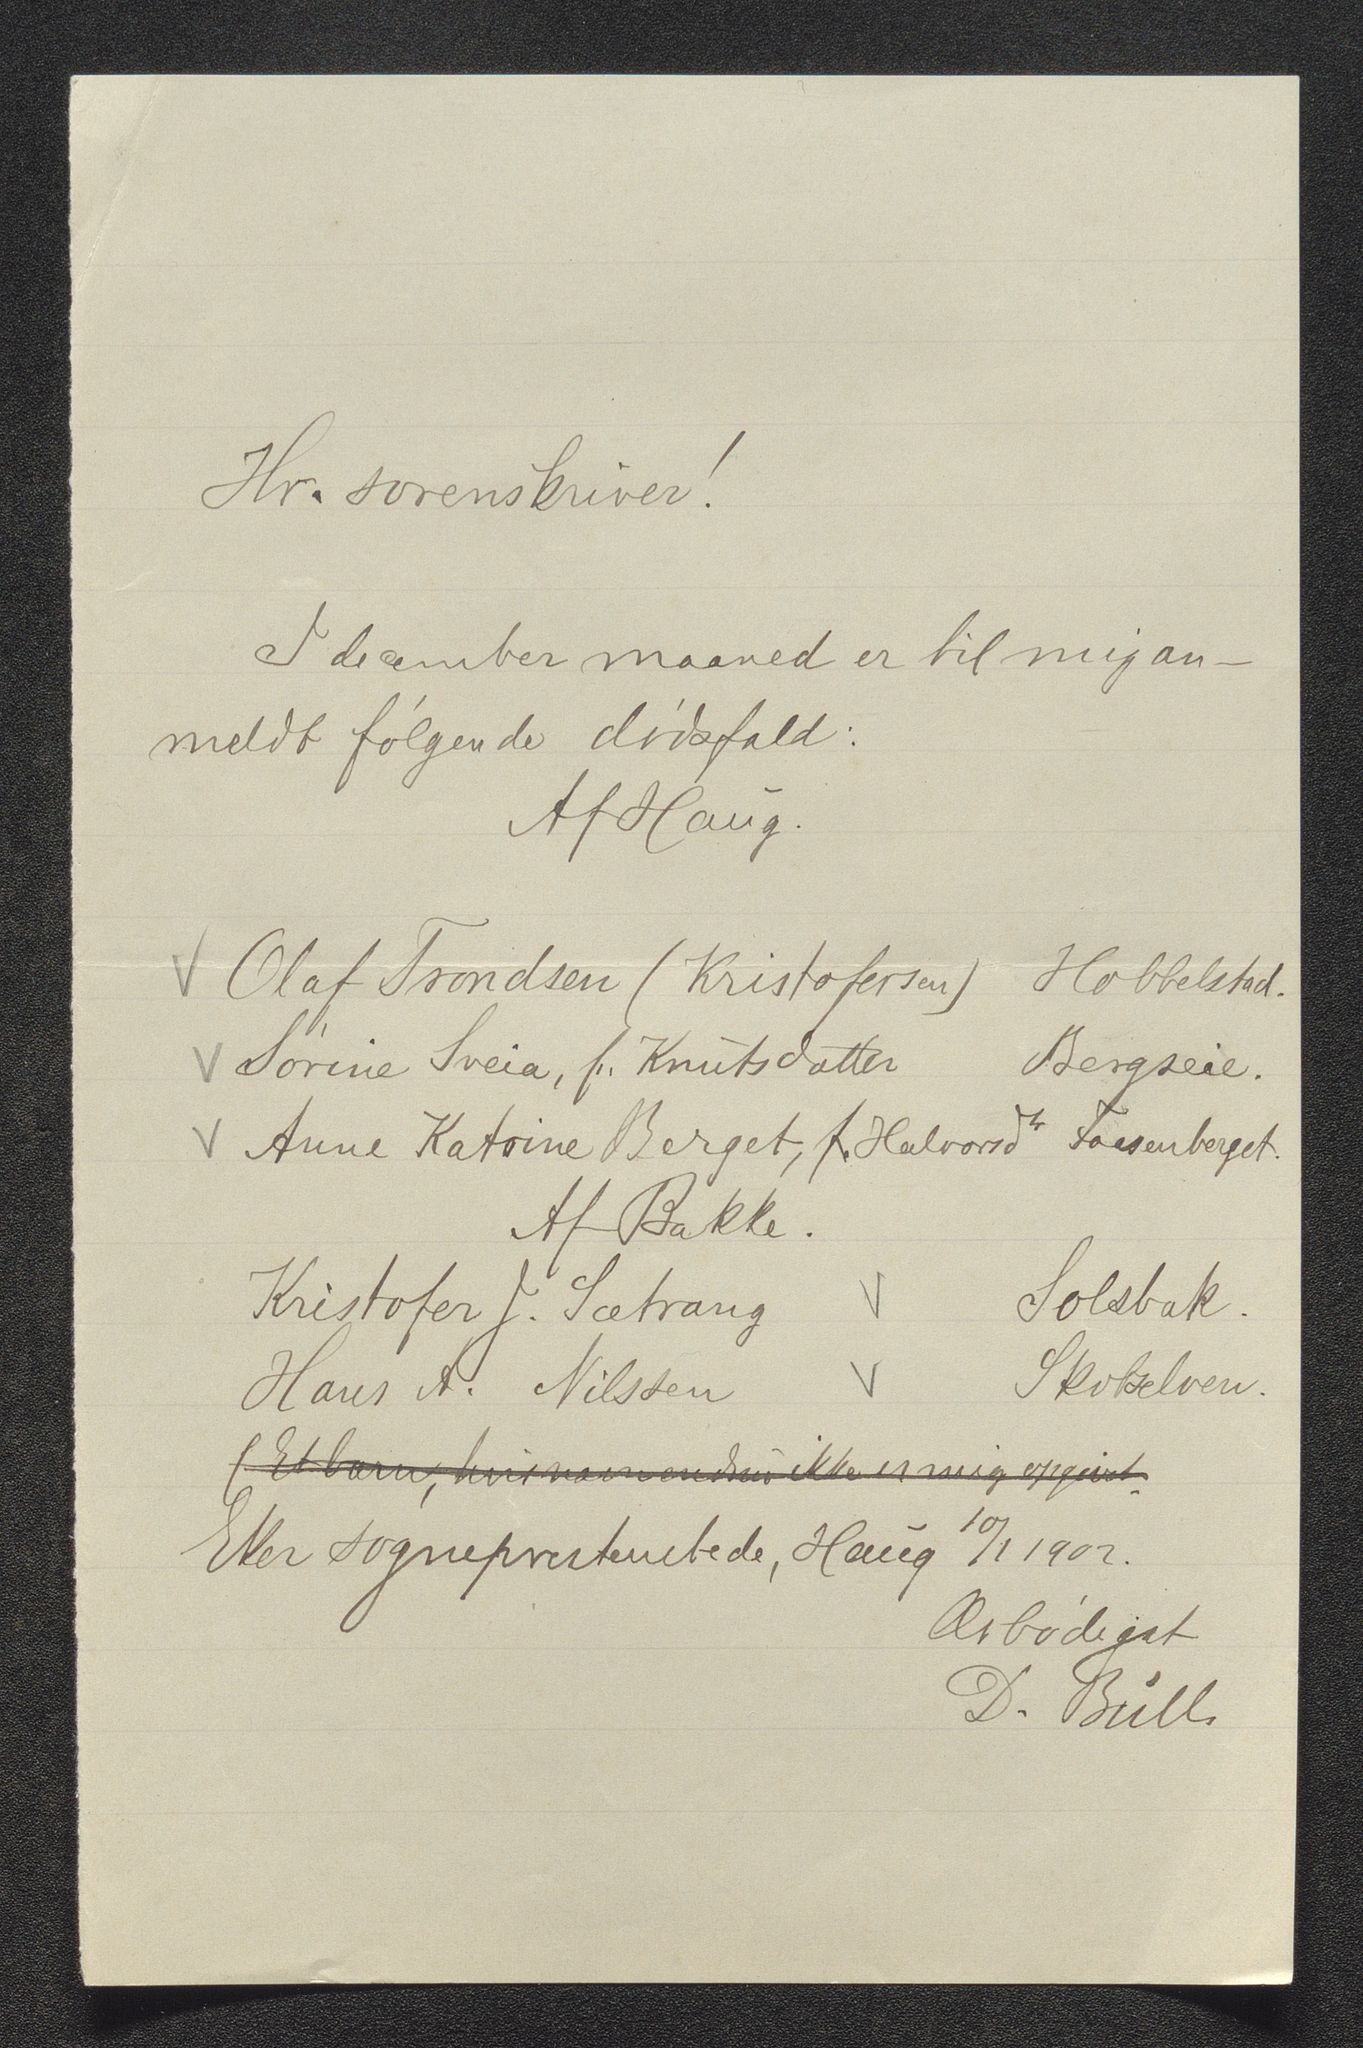 Hr. sorenskriver!
I december maaned er til mig an-
meldt følgende dødsfald:
Af Haug.
V Olaf Trondsen (Kristofersen) Hobbelstad.
V Sörine Sveia, f. Knutsdatter Bergseie.
V Anne Katrine Berget, f. Halvorsdtr Faasenberget.
Af Bakke.
Kristofer J. Sætrang V Solsbak.
Hans A. Nilssen V Skotselven.
(Et barn, hvis navn endnu ikke er mig opgivet.
Eker sogneprestembede, Haug 10/1 1902.
Ærbödigst
D. Bull.